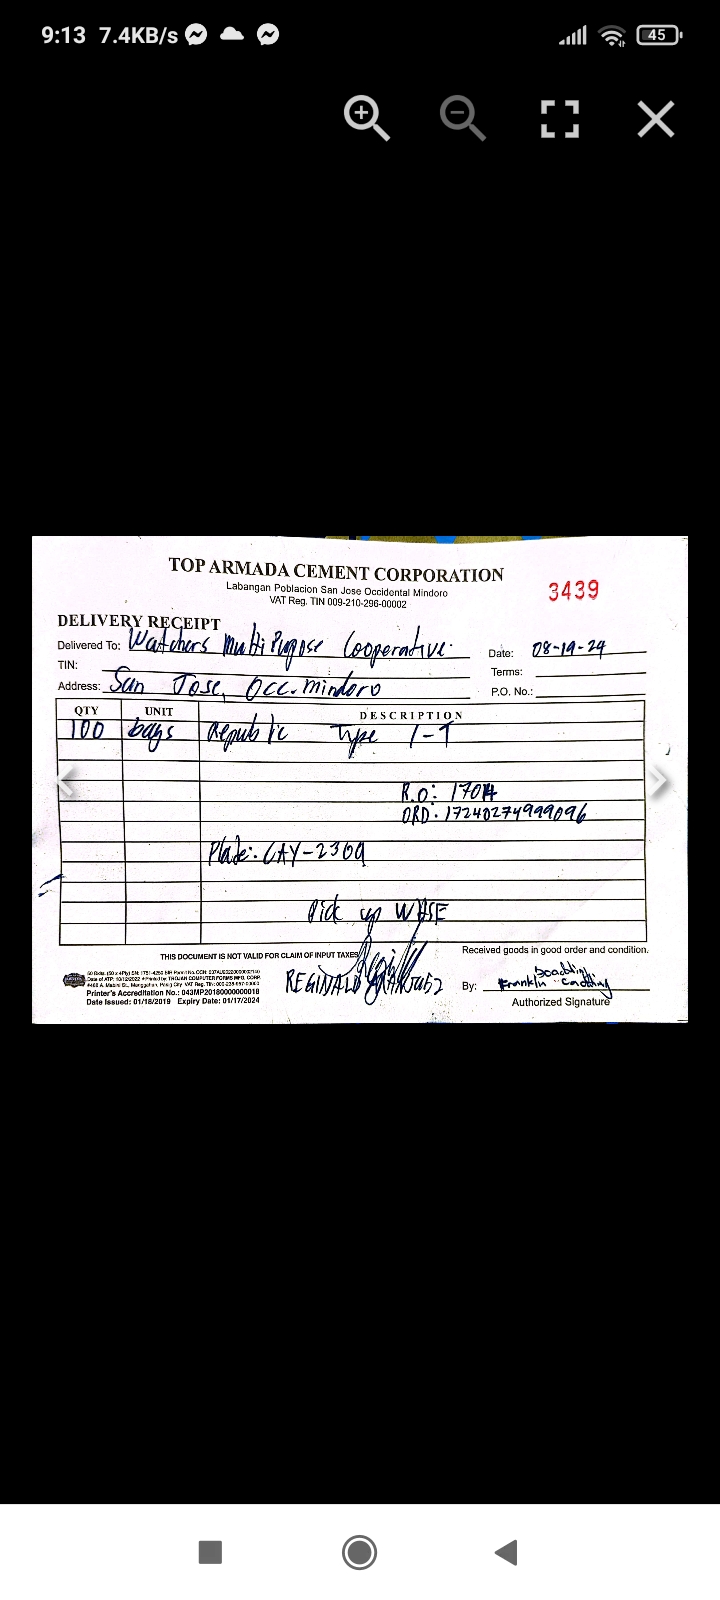 9:13 7.4KB/s
45
TOP ARMADA CEMENT CORPORATION
Labangan Poblacion San Jose Occidental Mindoro
VAT Reg. TIN 009-210-296-00002
3439
DELIVERY RECEIPT
Delivered To: Watchers Multi Purpose Cooperative
Date: 08-19-24
TIN:
Terms:
Address: San Jose, Occ. mindoro
P.O. No.:
QTY UNIT DESCRIPTION
100 bags Republic Type 1-T
R.O: 17014
ORD: 17240274999096
Plate: CAY-2309
Pick up WHSE
THIS DOCUMENT IS NOT VALID FOR CLAIM OF INPUT TAXES
Received goods in good order and condition.
Printer's Accreditation No.: 043MP20180000000018
Date Issued: 01/18/2019 Expiry Date: 01/17/2024
REGINALD
By: Franklin
Authorized Signature